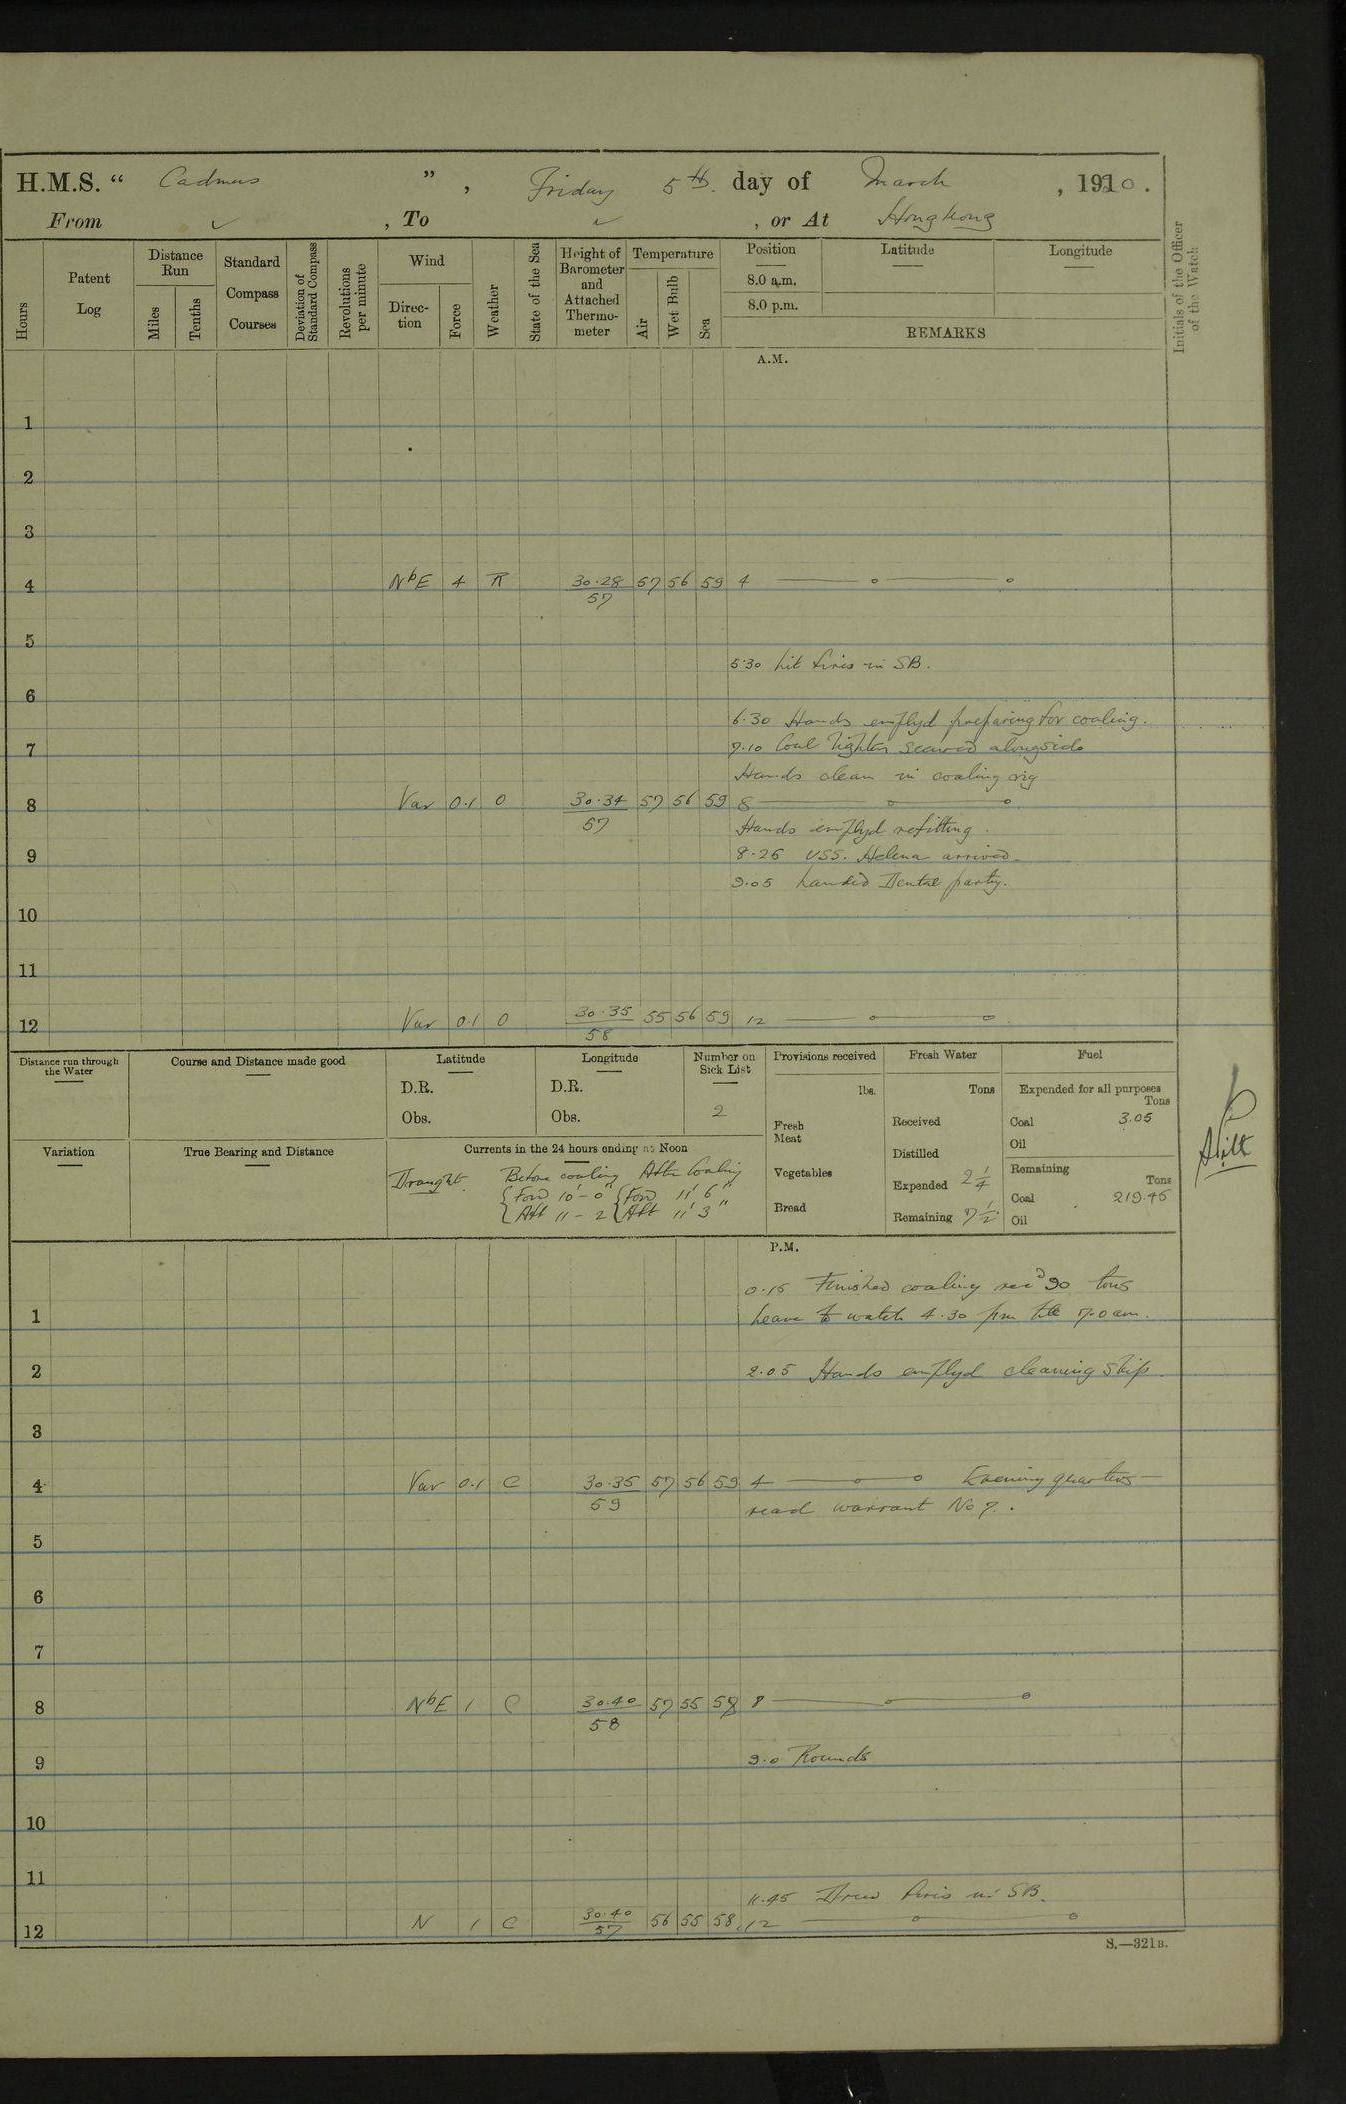 H.M.S. “ Cadmus ” , Friday 5th. day of March , 1920 .
From ✓ , To ✓ , or At Hong Kong
Hours
Patent Log
Distance Run
Miles
Tenths
Standard Compass Courses
Deviation of Standard Compass
Revolutions per minute
Wind
Direc-tion
Force
Weather
State of the Sea
Height of Barometer and Attached Thermo-meter
Temperature
Air
Wet Bulb
Sea
Position
Latitude
Longitude
8.0 a.m.
8.0 p.m.
REMARKS
Initials of the Officer of the Watch
A.M.
1
2
3
4 NbE 4 R 30.28 57 56 59 4
57
5
5.30 Lit fires in SB.
6
6.30 Hands emplyd preparing for coaling.
7
7.10 Coal lighter secured alongside
Hands clean in coaling rig
8 Var 0.1 O 30.34 57 56 59 8
57
Hands emplyd refitting.
9
8.26 USS. Helena arrived.
9.05 Landed Dental party.
10
11
12 Var 0.1 O 30.35 55 56 59 12
58
Distance run through the Water
Course and Distance made good
Latitude
D.R.
Obs.
Longitude
D.R.
Obs.
Number on Sick List
2
Provisions received
lbs.
Fresh Meat
Vegetables
Bread
Fresh Water
Tons
Received
Distilled
Expended 2 1/4
Remaining 7 1/2
Fuel
Expended for all purposes
Tons
Coal 3.05
Oil
Remaining
Tons
Coal 219.45
Oil
Variation
True Bearing and Distance
Currents in the 24 hours ending at Noon
Draught Before coaling After Coaling
{ Ford 10'-0" { Ford 11' 6"
{ Aft 11-2 { Aft 11' 3"
P.M.
0.15 Finished coaling recd 90 tons
1
Leave to watch 4.30 pm till 7.0 am.
2
2.05 Hands emplyd cleaning ship.
3
4 Var 0.1 C 30.35 57 56 59 4 Evening quarters
59
read warrant No 7.
5
6
7
8 NbE 1 C 30.40 57 55 58 8
58
9
9.0 Rounds
10
11
11.45 Drew fires in SB.
12 N 1 C 30.40 56 55 58 12
57
S.—321B.